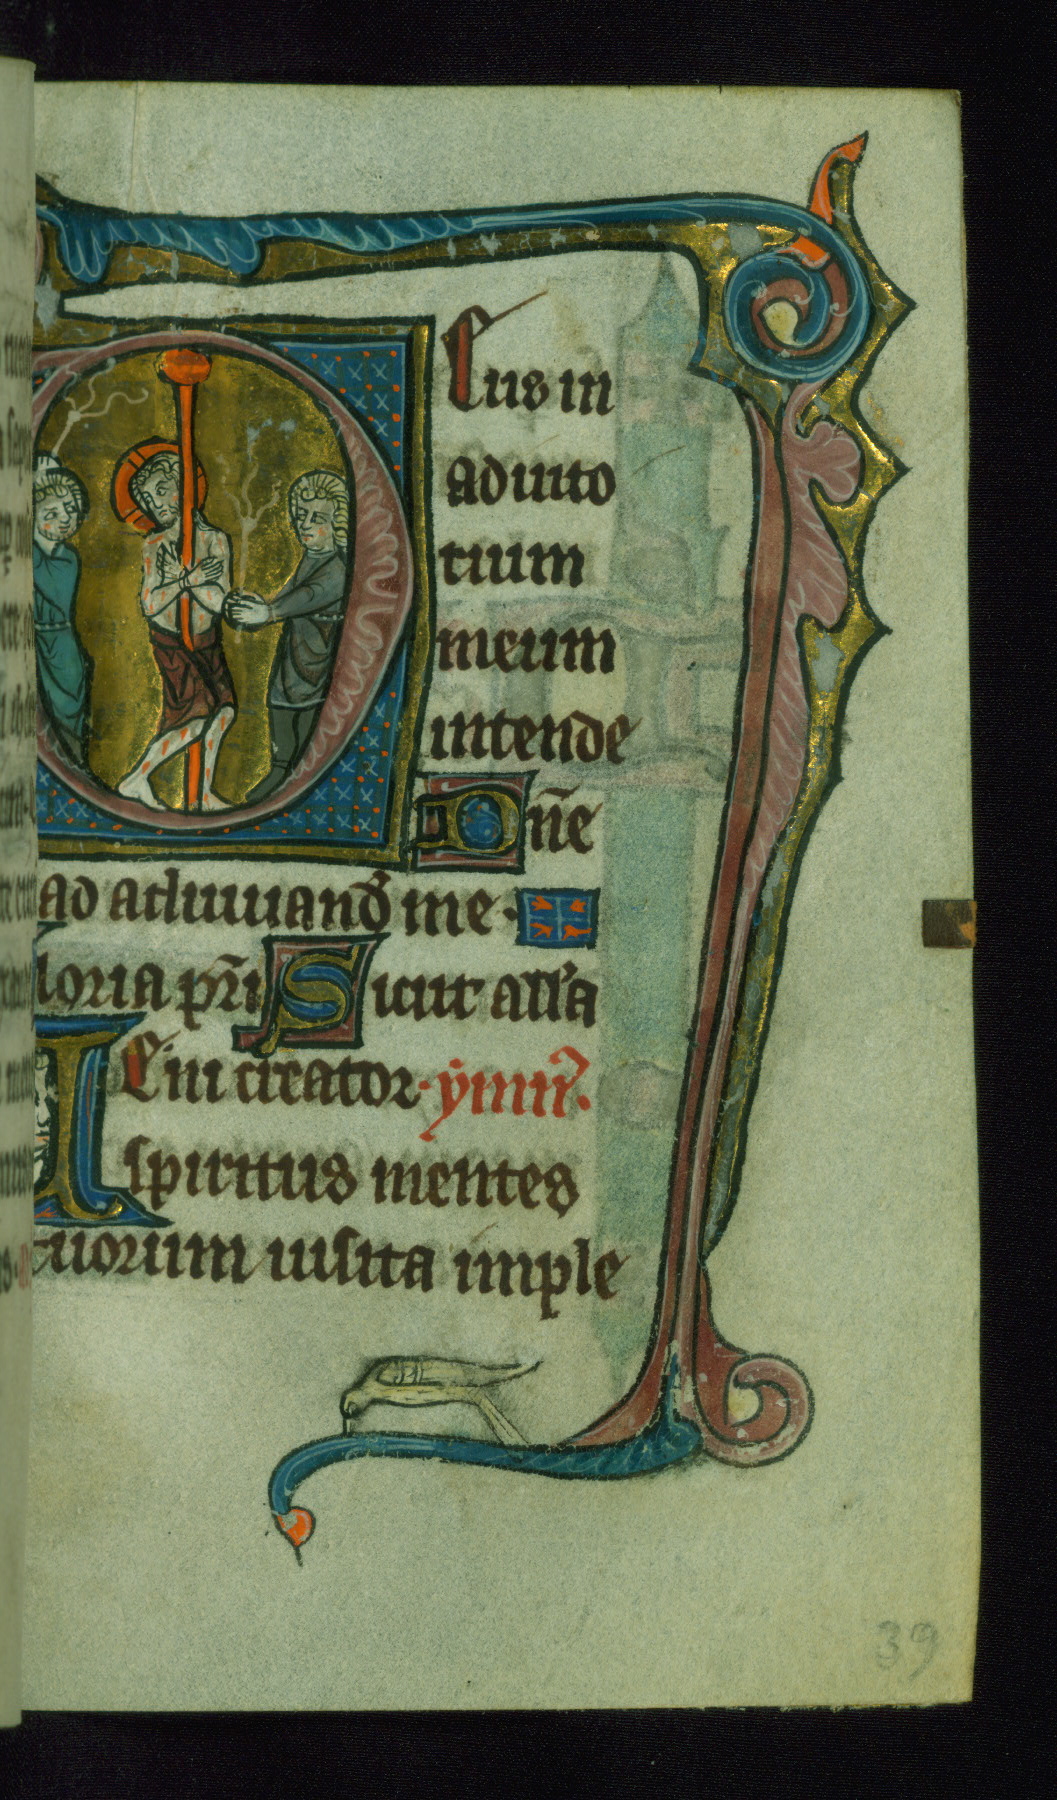 Eus in
adiuto
rium
meum
intende
Dn̄e
ad adiuuand̄ me
loria pr̄i Sicut all'a
Eni creator ymn̄
spiritus mentes
tuorum uisita imple
39